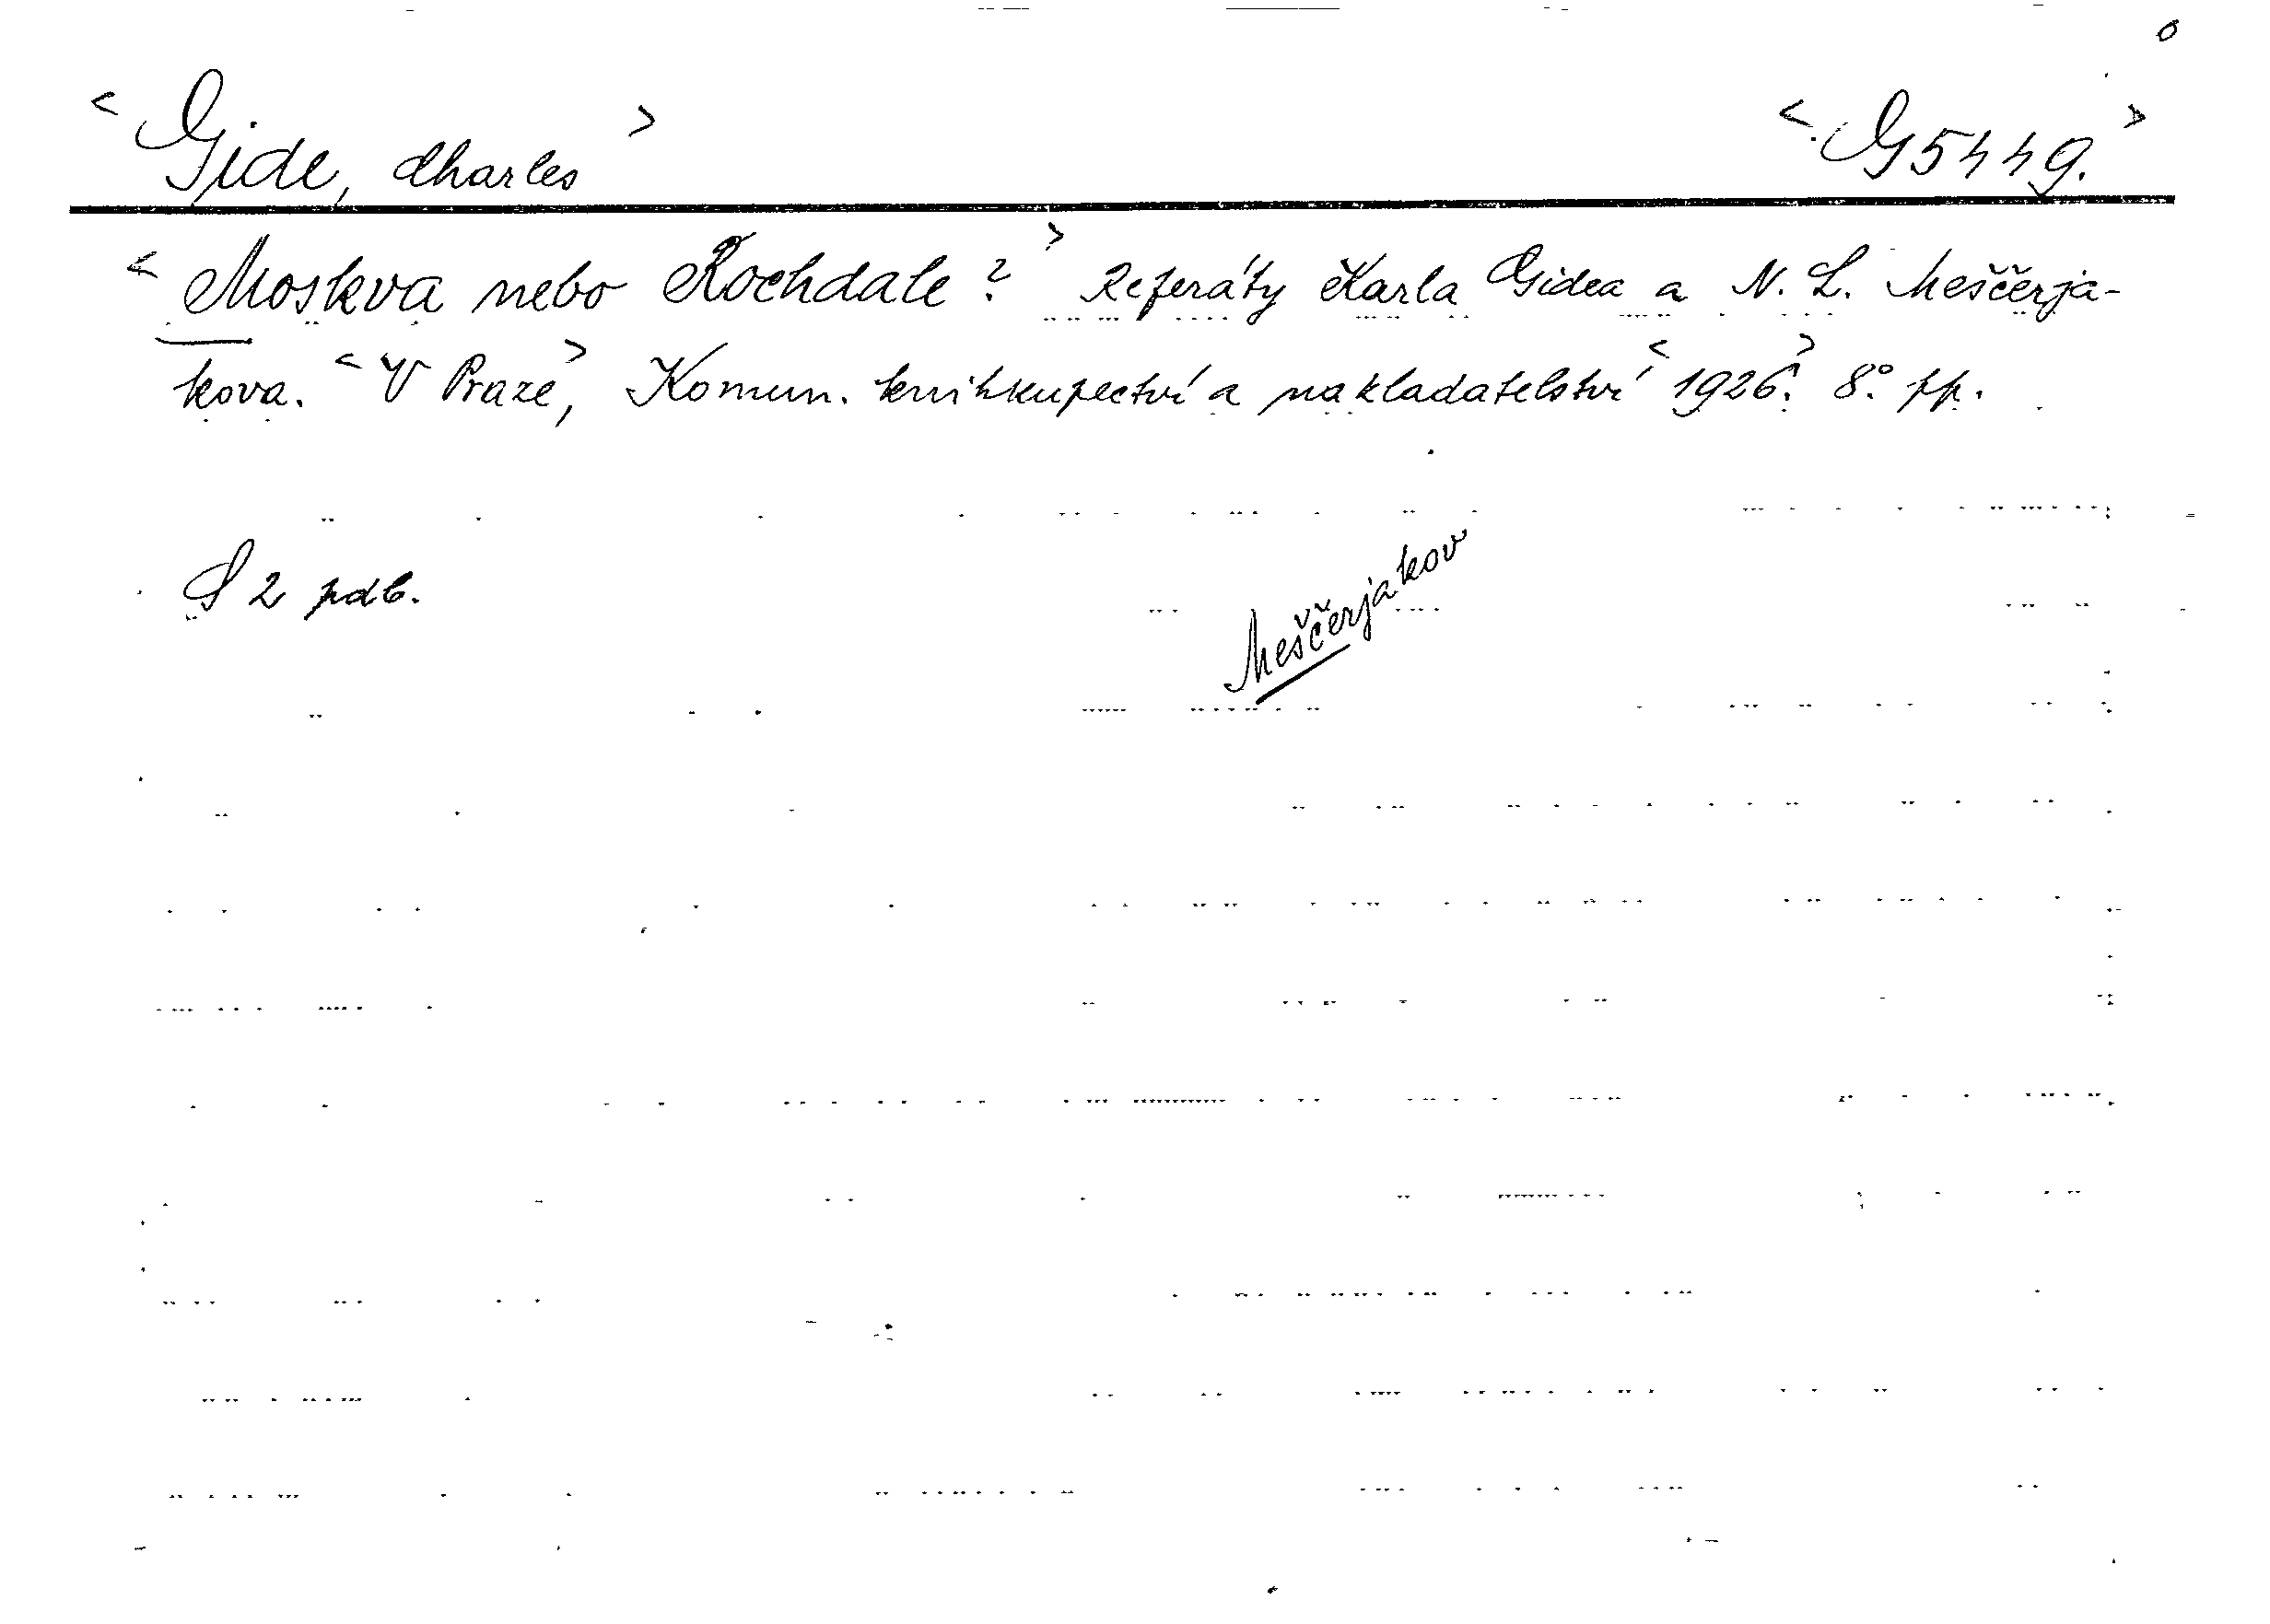 6
< Gide, Charles > < G 5449. >
< Moskva nebo Rochdale? > Referáty Karla Gidea a N. L. Meščerja-
kova. < V Praze >, Komun. knihkupectví a nakladatelství < 1926. > 8.° pp.
S 2 podb.
Meščerjakov